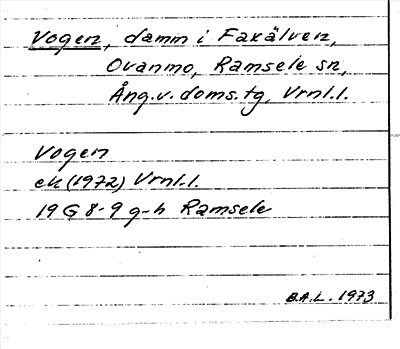 Vogen, damm i Faxälven,
Ovanmo, Ramsele sn,
Ång.v. doms.tg, Vrnl.l.
Vogen
ek (1972) Vrnl.l.
19 G 8-9 g-h Ramsele
B.A.L. 1973